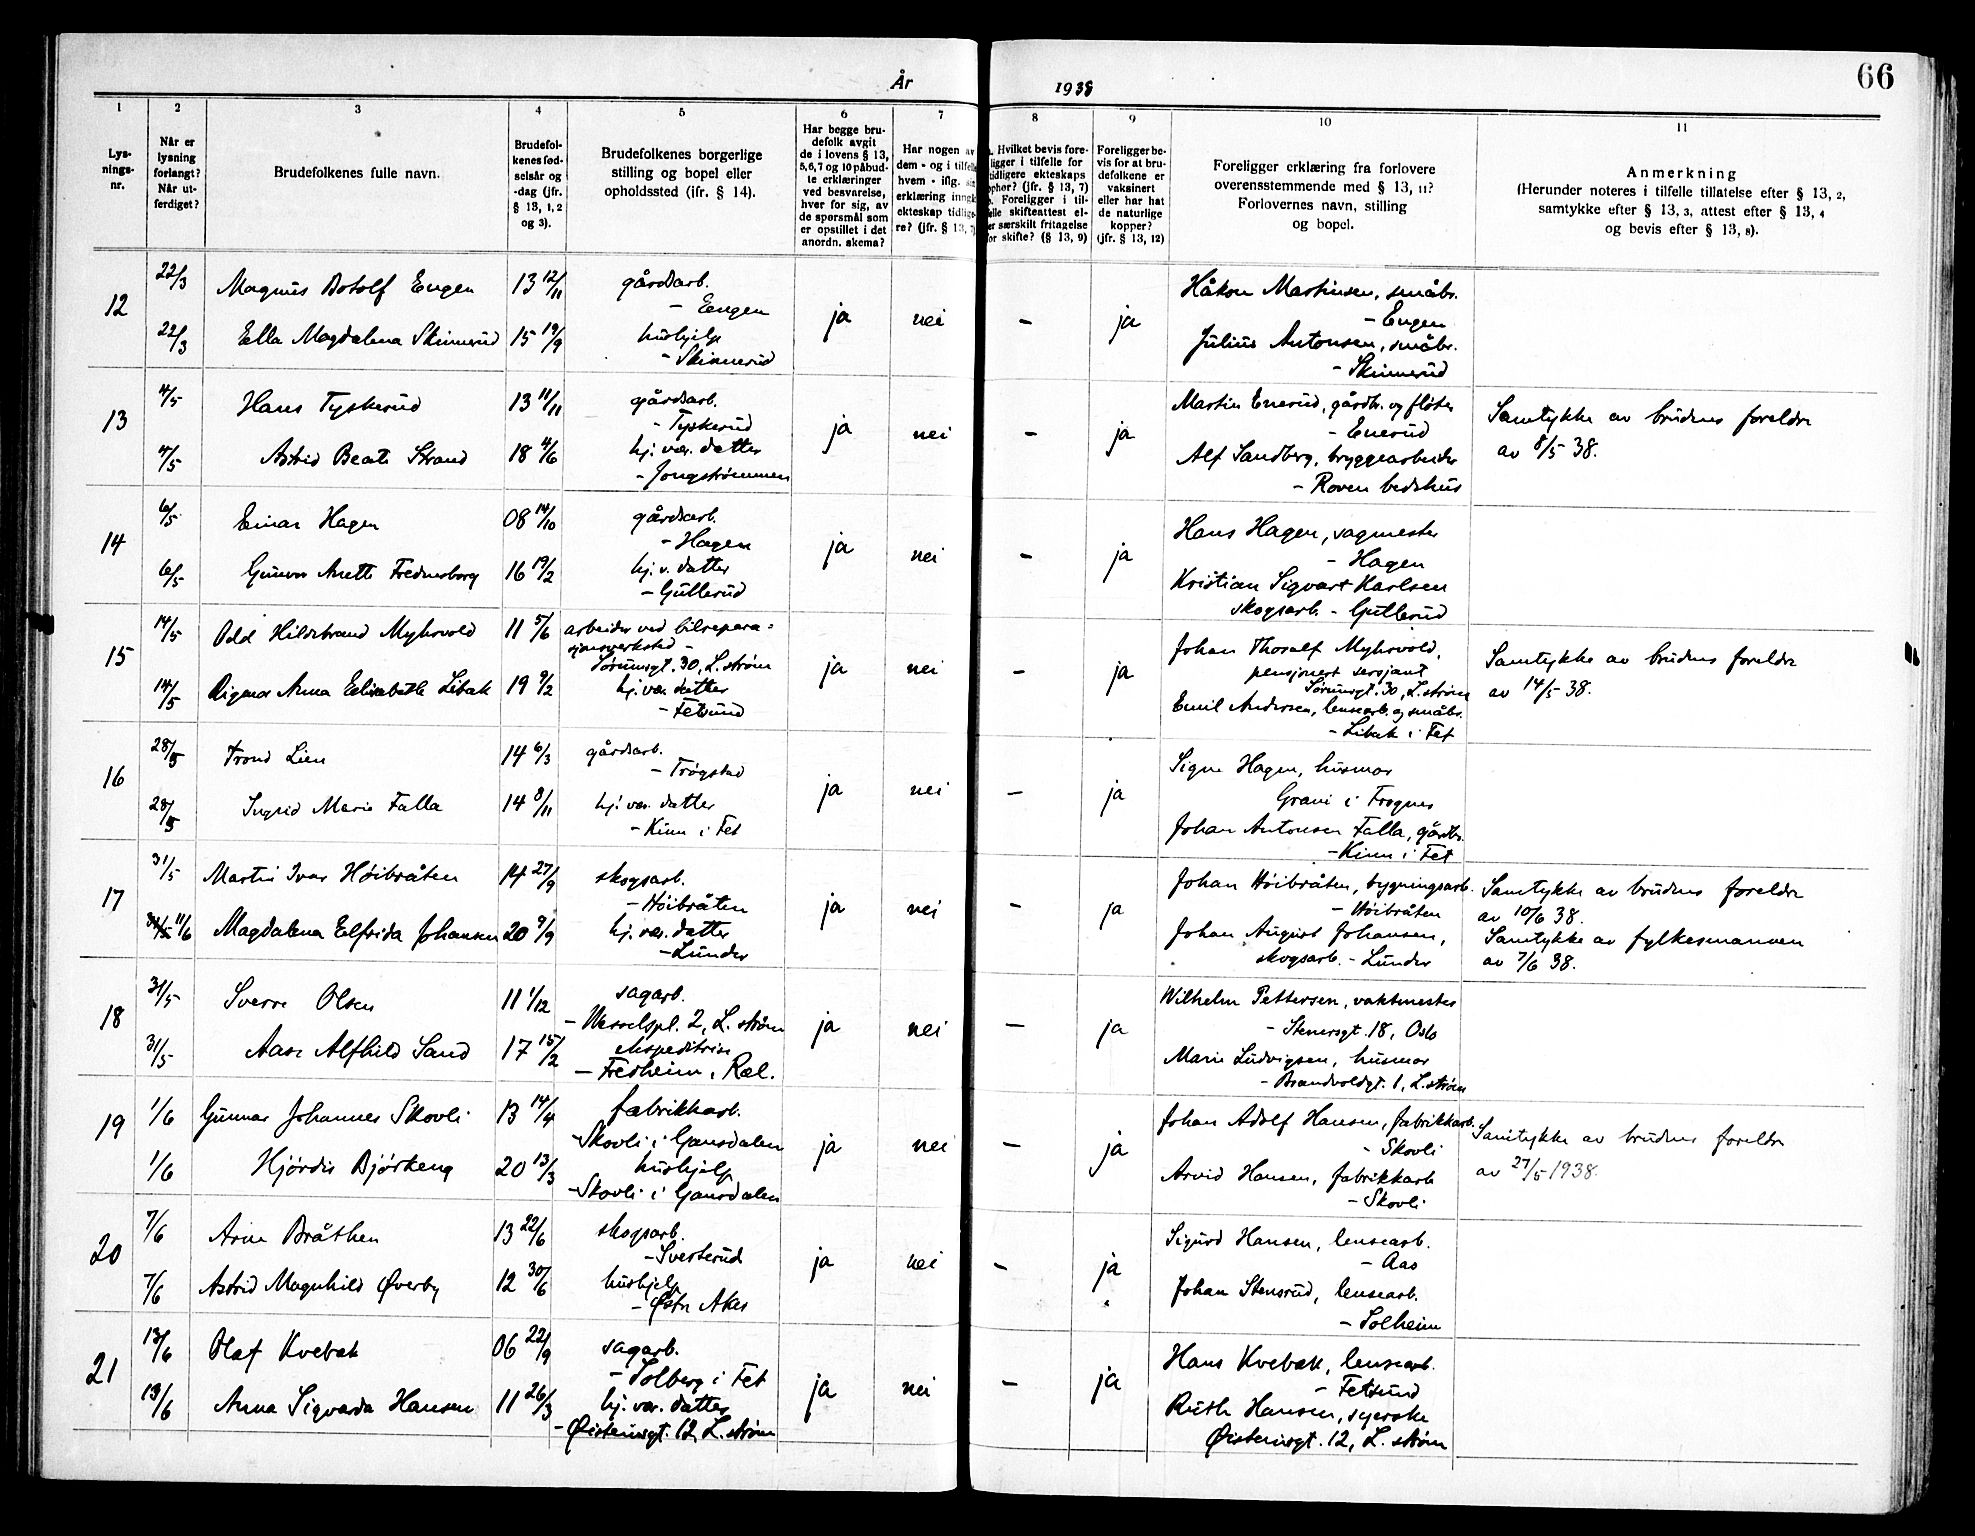 66
År 1938
1 2 3 4 5 6 7 8 9 10 11
Lys-
nings-
nr.
Når er
lysning
forlangt?
Når ut-
ferdiget?
Brudefolkenes fulle navn.
Brudefol-
kenes fød-
selsår og
-dag (jfr.
§ 13, 1, 2
og 3).
Brudefolkenes borgerlige
stilling og bopel eller
opholdssted (ifr. § 14).
Har begge bru-
defolk avgit
de i lovens § 13,
5,6,7 og 10 påbud-
te erklæringer
ved besvarelse,
hver for sig, av
de spørsmål som
er opstillet i det
anordn. skema?
Har nogen av
dem - og i tilfelle
hvem - iflg. sin
erklæring inngåt
ekteskap tidlige-
re? (jfr. § 13,
Hvilket bevis fore-
ligger i tilfelle for
tidligere ekteskaps
ophør? (jfr. § 13, 7)
Foreligger i til-
felle skifteattest el-
er særskilt fritagelse
for skifte? (§ 13, 9)
Foreligger be-
vis for at bru-
defolkene er
vaksinert
eller har hat
de naturlige
kopper?
(jfr. § 13, 12)
Foreligger erklæring fra forlovere
overensstemmende med § 13, 11?
Forlovernes navn, stilling
og bopel.
Anmerkning
(Herunder noteres i tilfelle tillatelse efter § 13, 2,
samtykke efter § 13, 3, attest efter § 13, 4
og bevis efter § 13, 8).
12 22/3 Magnus Botolf Engen 13 12/11 gårdsarb. ja nei – ja Håkon Martinsen, småbr.
– Engen – Engen
22/3 Ella Magdalena Skinnerud 15 19/9 hushjelp Julius Antonsen, småbr.
– Skinnerud – Skinnerud
13 4/5 Hans Tyskerud 13 11/11 gårdsarb. ja nei – ja Martin Enerud, gårdbr. og fløter Samtykke av brudens foreldre
– Tyskerud – Enerud av 8/5 38.
4/5 Astrid Beate Strand 18 4/6 hj. vær. datter Alf Sandberg, bryggearbeider
– Jongstrømmen – Roven bedehus
14 6/5 Einar Hagen 08 14/10 gårdsarb. ja nei – ja Hans Hagen, sagmester
– Hagen – Hagen
6/5 Gunvor Anette Fredensborg 16 19/2 hj. v. datter Kristian Sigvart Karlsen
– Gullerud skogsarb. – Gullerud
15 14/5 Odd Hildebrand Myhrvold 11 5/6 arbeider ved bilrepara= ja nei – ja Johan Thoralf Myhrvold, Samtykke av brudens foreldre
sjonsverksted – pensjonert sersjant av 14/5 38.
Sørumsgt. 30, L. strøm Sørumsgt. 30, L. strøm
14/5 Digmor Anna Elisabeth Libak 19 9/2 hj. vær. datter Emil Andersen, lensearb. og småbr.
– Fetsund – Libak i Fet
16 28/5 Trond Lien 14 6/3 gårdsarb. ja nei – ja Signe Hagen, husmor
– Trøgstad i Frogner
28/5 Ingrid Marie Falla 14 8/11 hj. vær. datter Johan Antonsen Falla, gårdbr.
– Kinn i Fet – Kinn i Fet
17 31/5 Martin Ivar Høibråten 14 27/9 skogsarb. ja nei – ja Johan Høibråten, bygningsarb. Samtykke av brudens foreldre
– Høibråten – Høibråten av 10/6 38.
31/5 11/6 Magdalena Elfrida Johansen 20 9/9 hj. vær. datter Johan August Johansen, Samtykke av fylkesmannen
– Lunder skogsarb. – Lunder av 7/6 38.
18 31/5 Sverre Olsen 11 1/12 sagarb. ja nei – ja Wilhelm Pettersen, vaktmester
– Wesselspl. 2, L. strøm – Stenersgt. 18, Oslo
31/5 Aase Alfhild Sand 17 15/2 ekspeditrise Marie Ludvigsen, husmor
– Fredheim, Ræl. – Brandvoldgt. 1, L. strøm
19 1/6 Gunnar Johannes Skovli 13 14/4 fabrikkarb. ja nei – ja Johan Adolf Hansen, fabrikkarb. Samtykke av brudens foreldre
– Skovli i Gansdalen – Skovli av 27/5 1938.
1/6 Hjørdis Bjørkeng 20 13/3 hushjelp Arvid Hansen, fabrikkarb
– Skovli i Gansdalen – Skovli
20 7/6 Arne Bråthen 13 22/6 skogsarb. ja nei – ja Sigurd Hansen, lensearb.
– Sverterud – Aas
7/6 Astrid Magnhild Øverby 12 30/6 hushjelp Johan Stensrud, lensearb.
– Østre Aker – Solheim
21 13/6 Olaf Kvebak 06 22/9 sagarb. ja nei – ja Hans Kvebak, lensearb.
– Solberg i Fet – Fetsund
13/6 Anna Sigvarda Hansen 11 26/3 hj. vær. datter Ruth Hansen, syerske
– Øisteinsgt. 12, L. strøm Øisteinsgt. 12, L. strøm